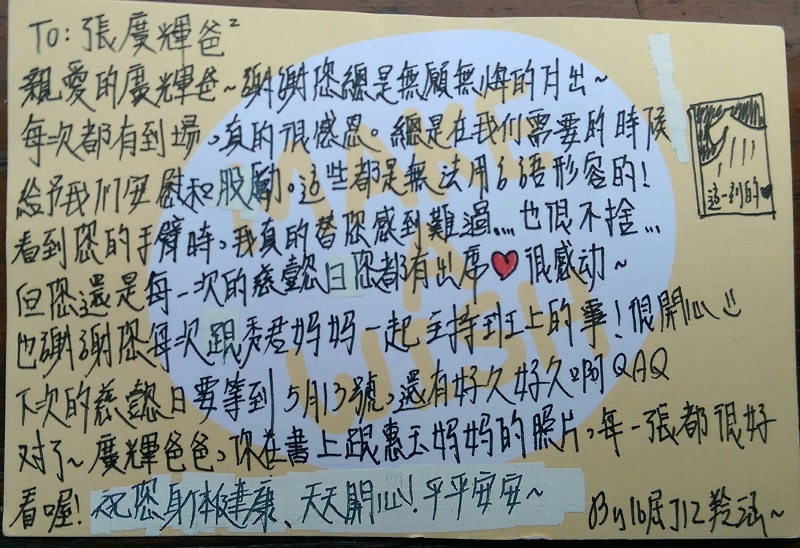 To: 張廣輝爸²
親愛的廣輝爸~謝謝您總是無願無悔的付出~
每次都有到場,真的很感恩。總是在我们需要的時候
給予我们安慰和股勵。這些都是無法用言語形容的!
看到您的手臂時,我真的替您感到難過....也很不捨...
但您還是每一次的慈懿日您都有出席♥很感动~
也謝謝您每次跟秀君妈妈一起主持班上的事!很開心
下次的慈懿日要等到5月13號,還有好久好久啊QAQ
对了~廣輝爸爸,你在書上跟惠玉妈妈的照片,每一張都很好
看喔!祝您身体健康、天天開心!平平安安~
By 16屆J12 羚涵~
這一刻的♥
MAKE A WISH